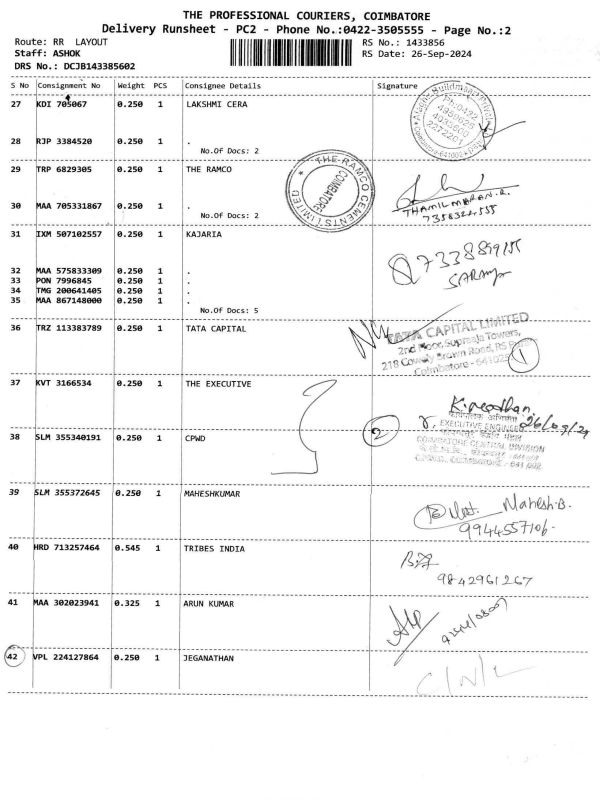 THE PROFESSIONAL COURIERS, COIMBATORE
Delivery Runsheet - PC2 - Phone No.:0422-3505555 - Page No.:2
Route: RR LAYOUT
Staff: ASHOK
DRS No.: DCJB143385602
RS No.: 1433856
RS Date: 26-Sep-2024
S No Consignment No Weight PCS Consignee Details Signature
27 KDI 705067 0.250 1 LAKSHMI CERA
28 RJP 3384520 0.250 1 .
No.Of Docs: 2
29 TRP 6829305 0.250 1 THE RAMCO
THE RAMCO CEMENTS LIMITED
COIMBATORE
THAMIL MARAN.R.
30 MAA 705331867 0.250 1 .
No.Of Docs: 2
31 IXM 507102557 0.250 1 KAJARIA
32 MAA 575833309 0.250 1 .
33 PON 7996845 0.250 1 .
34 TMG 200641405 0.250 1 .
35 MAA 867148000 0.250 1 .
No.Of Docs: 5
36 TRZ 113383789 0.250 1 TATA CAPITAL
TATA CAPITAL LIMITED
2nd Floor, Supreaja Towers,
218 Cowly Brown Road, RS
Coimbatore - 64102
1
37 KVT 3166534 0.250 1 THE EXECUTIVE
26/09/24
EXECUTIVE ENGINEER
2
38 SLM 355340191 0.250 1 CPWD
COIMBATORE CENTRAL DIVISION
39 SLM 355372645 0.250 1 MAHESHKUMAR
Mahesh.B.
9944557106-
40 HRD 713257464 0.545 1 TRIBES INDIA
9842961267
41 MAA 302023941 0.325 1 ARUN KUMAR
42 VPL 224127864 0.250 1 JEGANATHAN
C/N/L